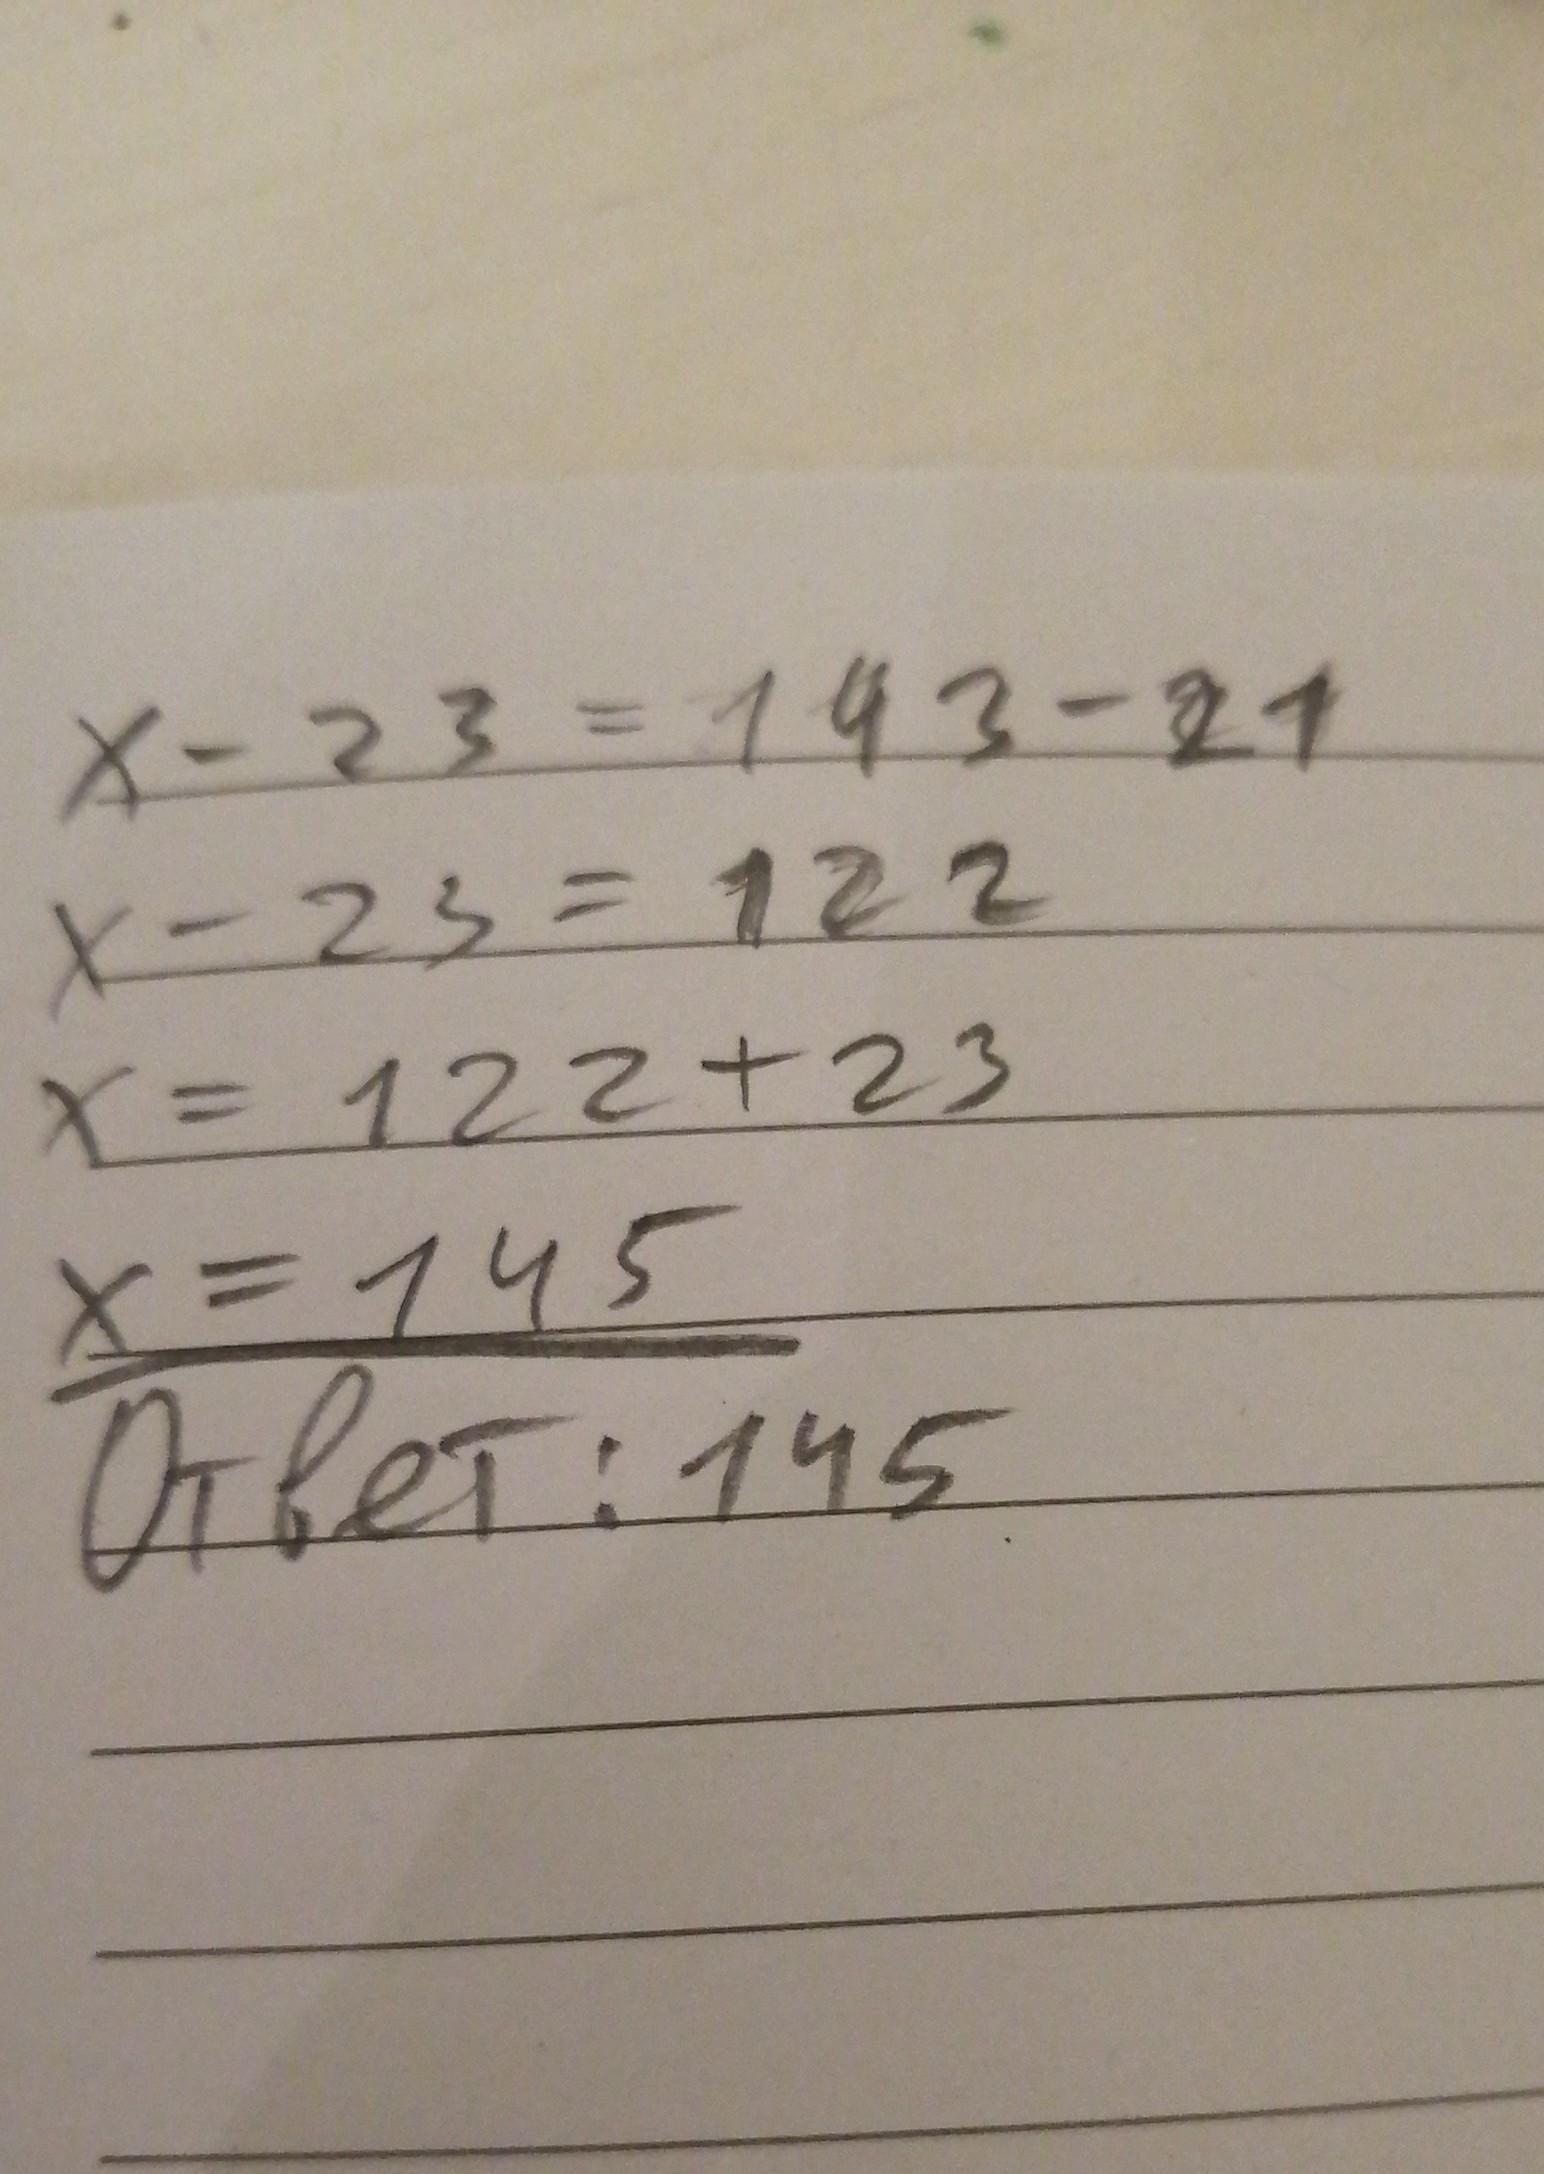 x - 23 = 143 - 21
x - 23 = 122
x = 122 + 23
x = 145
Ответ: 145